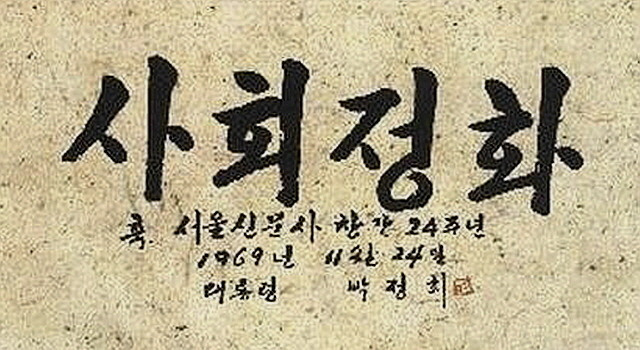 사회정화
축. 서울신문사 창간 24주년
1969년 11월 24일
대통령 박정희